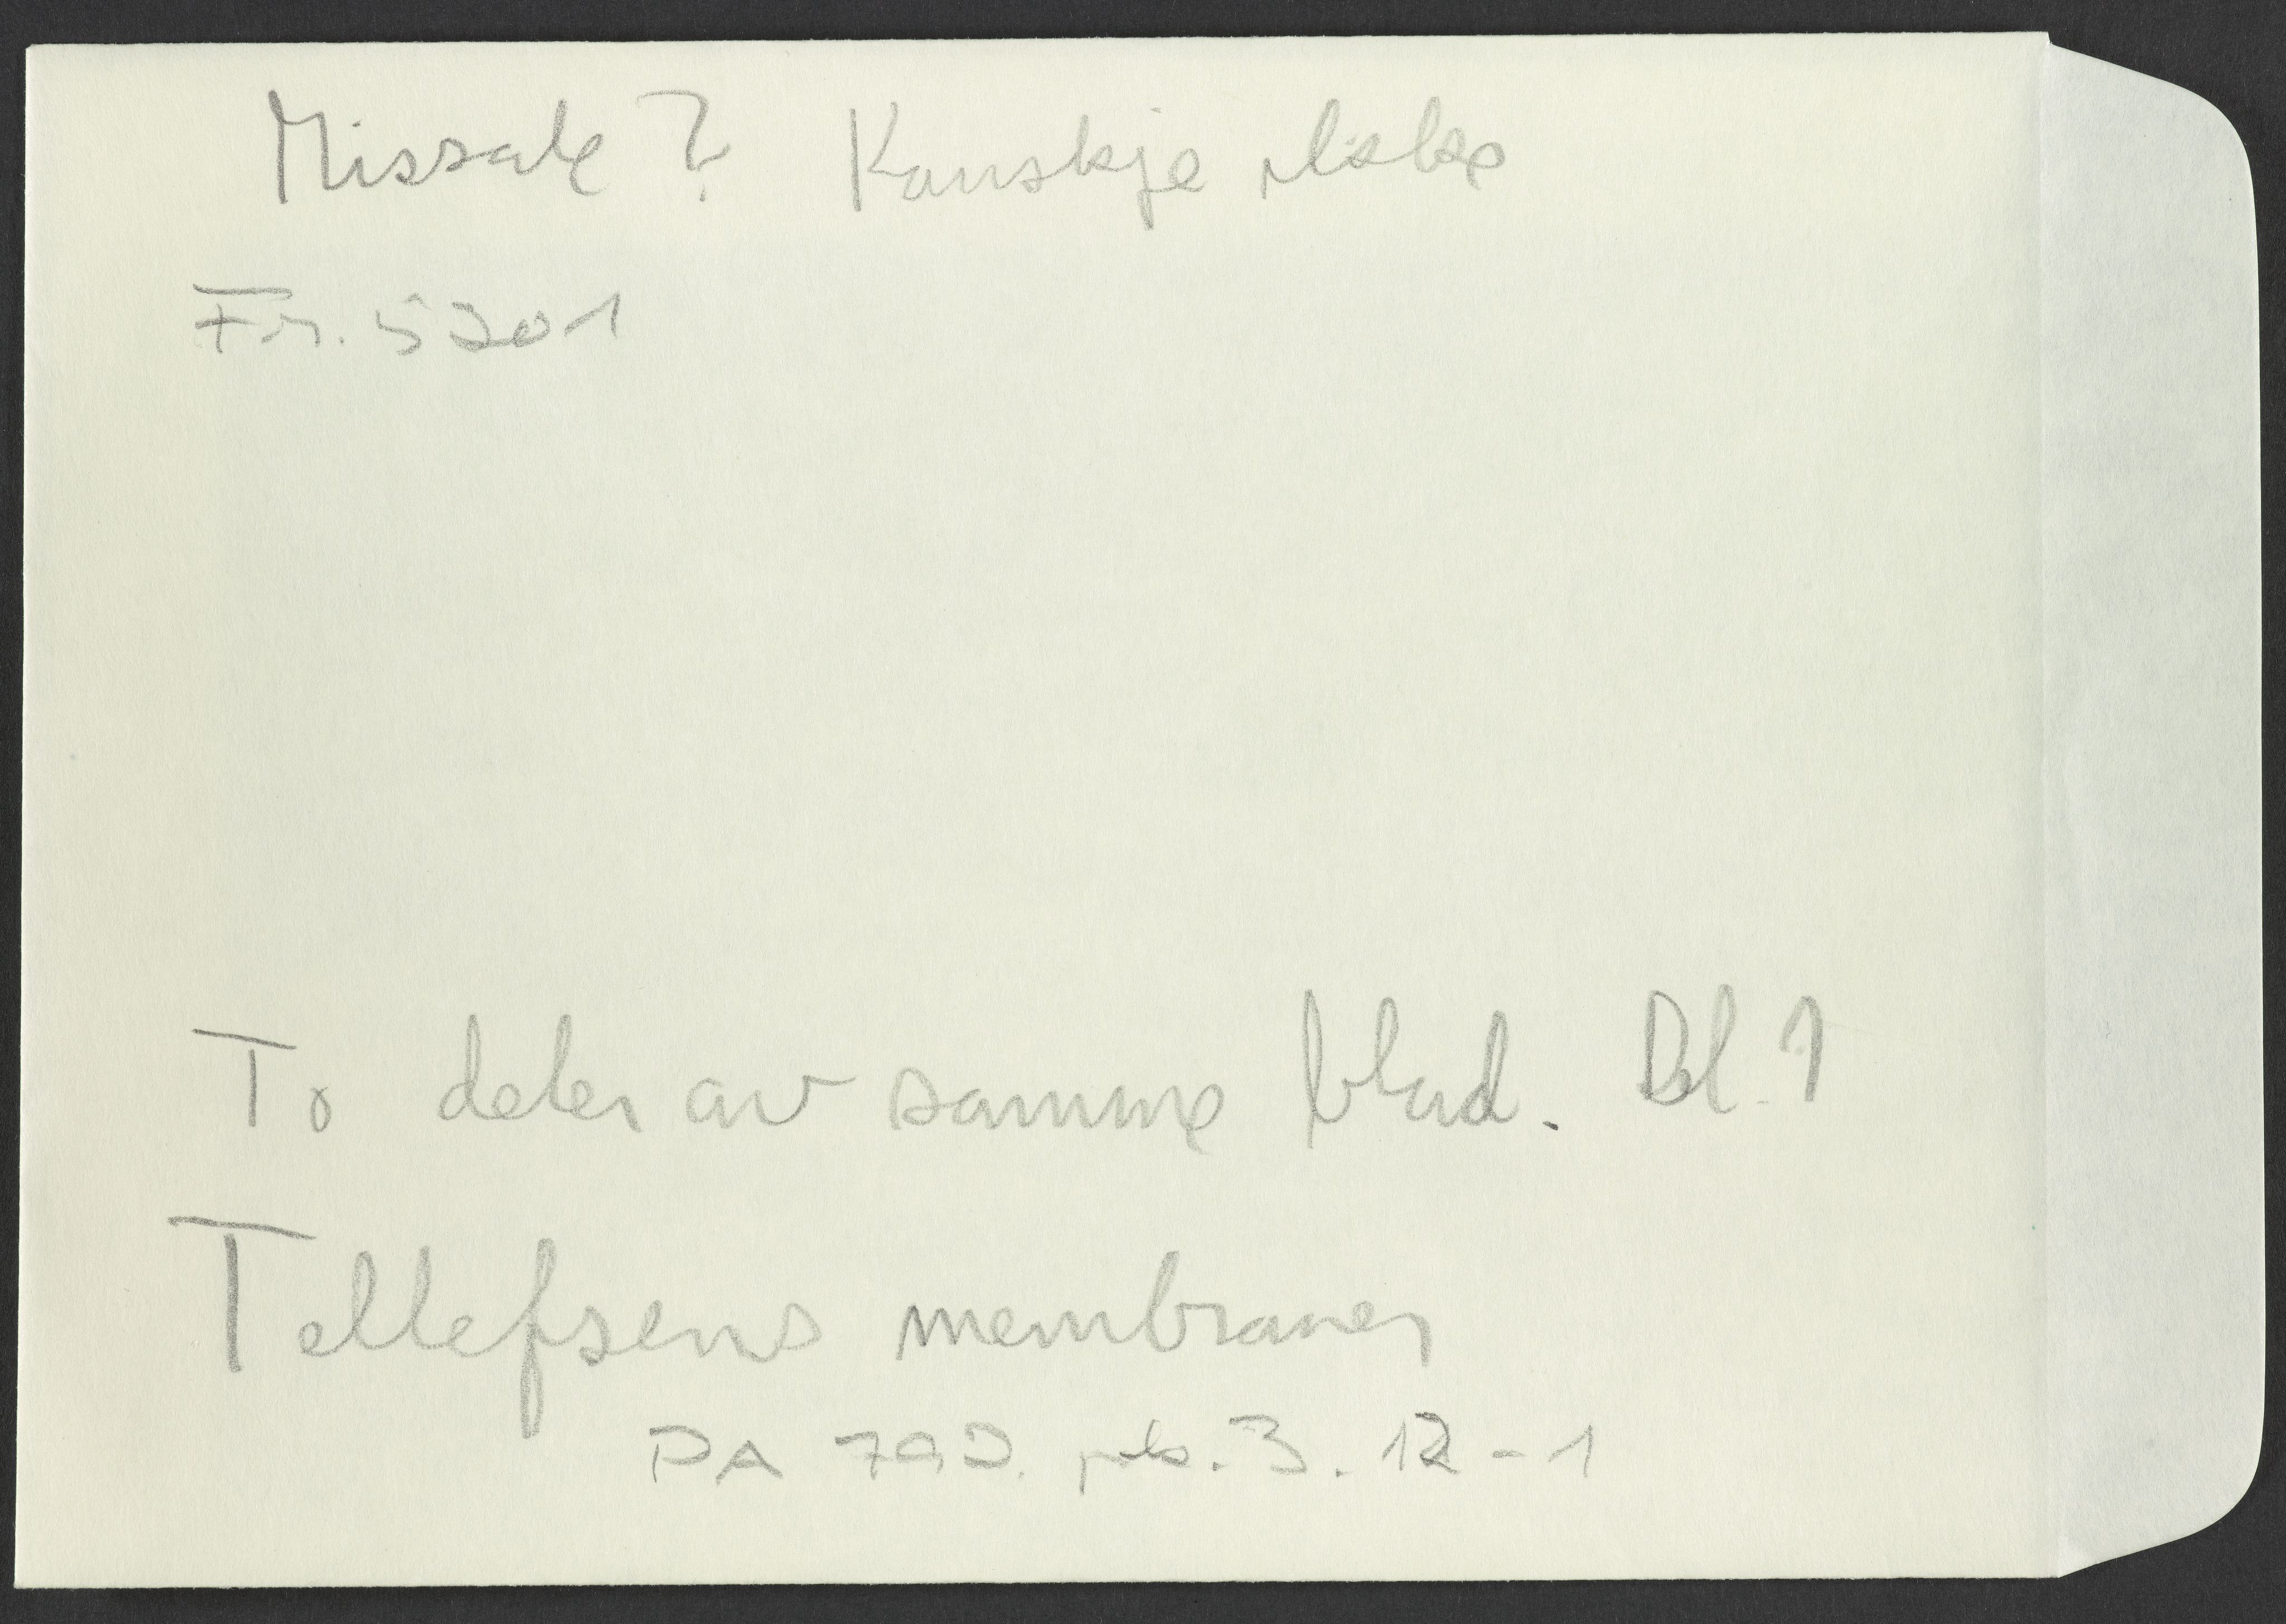 Missale? Kanskje ikke
Fr. 5201
To deler av samme blad. Bl. 1
Tellefsens membraner
PA 792. pk. 3. 12-1